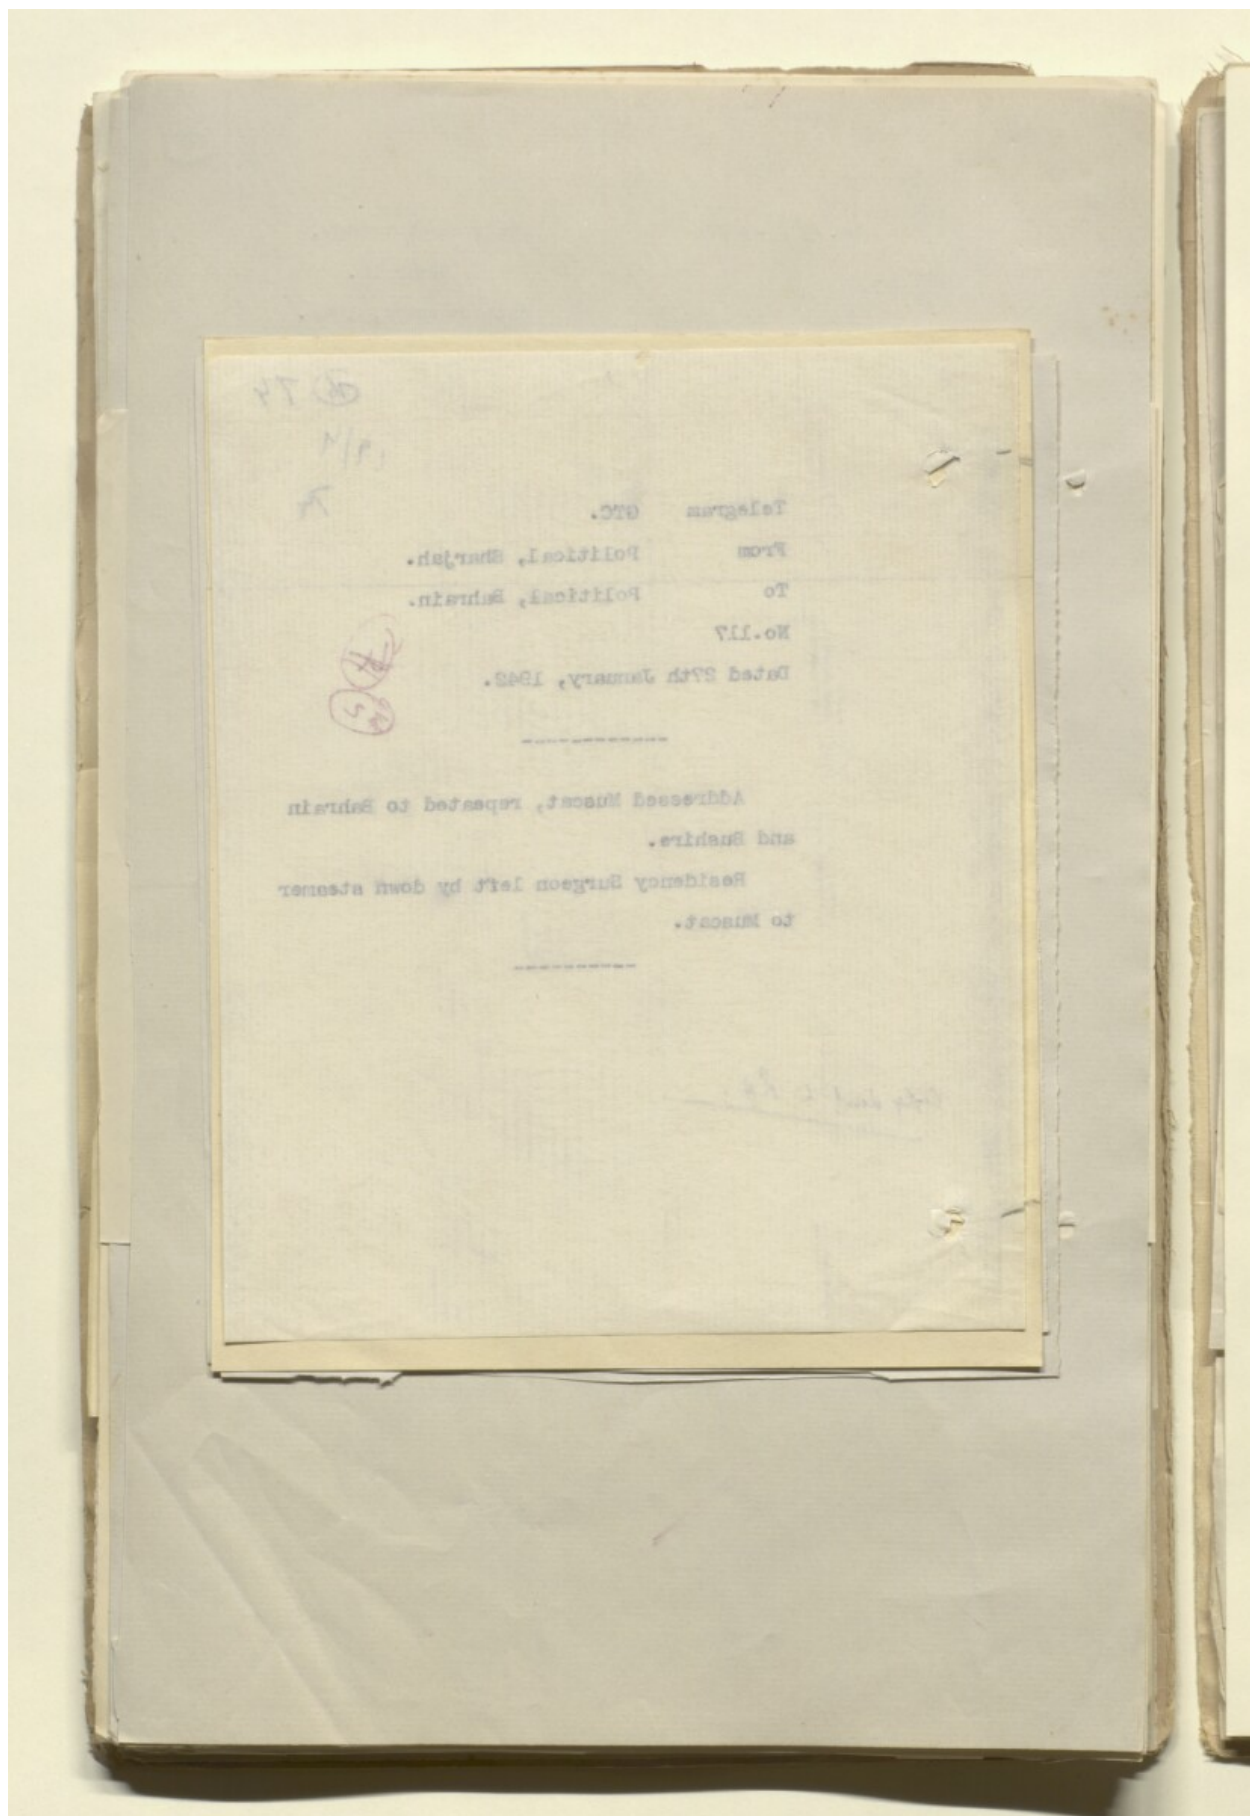 Telegram GTC.
From Political, Sharjah.
To Political, Bahrain.
No.117
Dated 27th January, 1942.
------------
Addressed Muscat, repeated to Bahrain
and Bushire.
Residency Surgeon left by down steamer
to Muscat.
----------